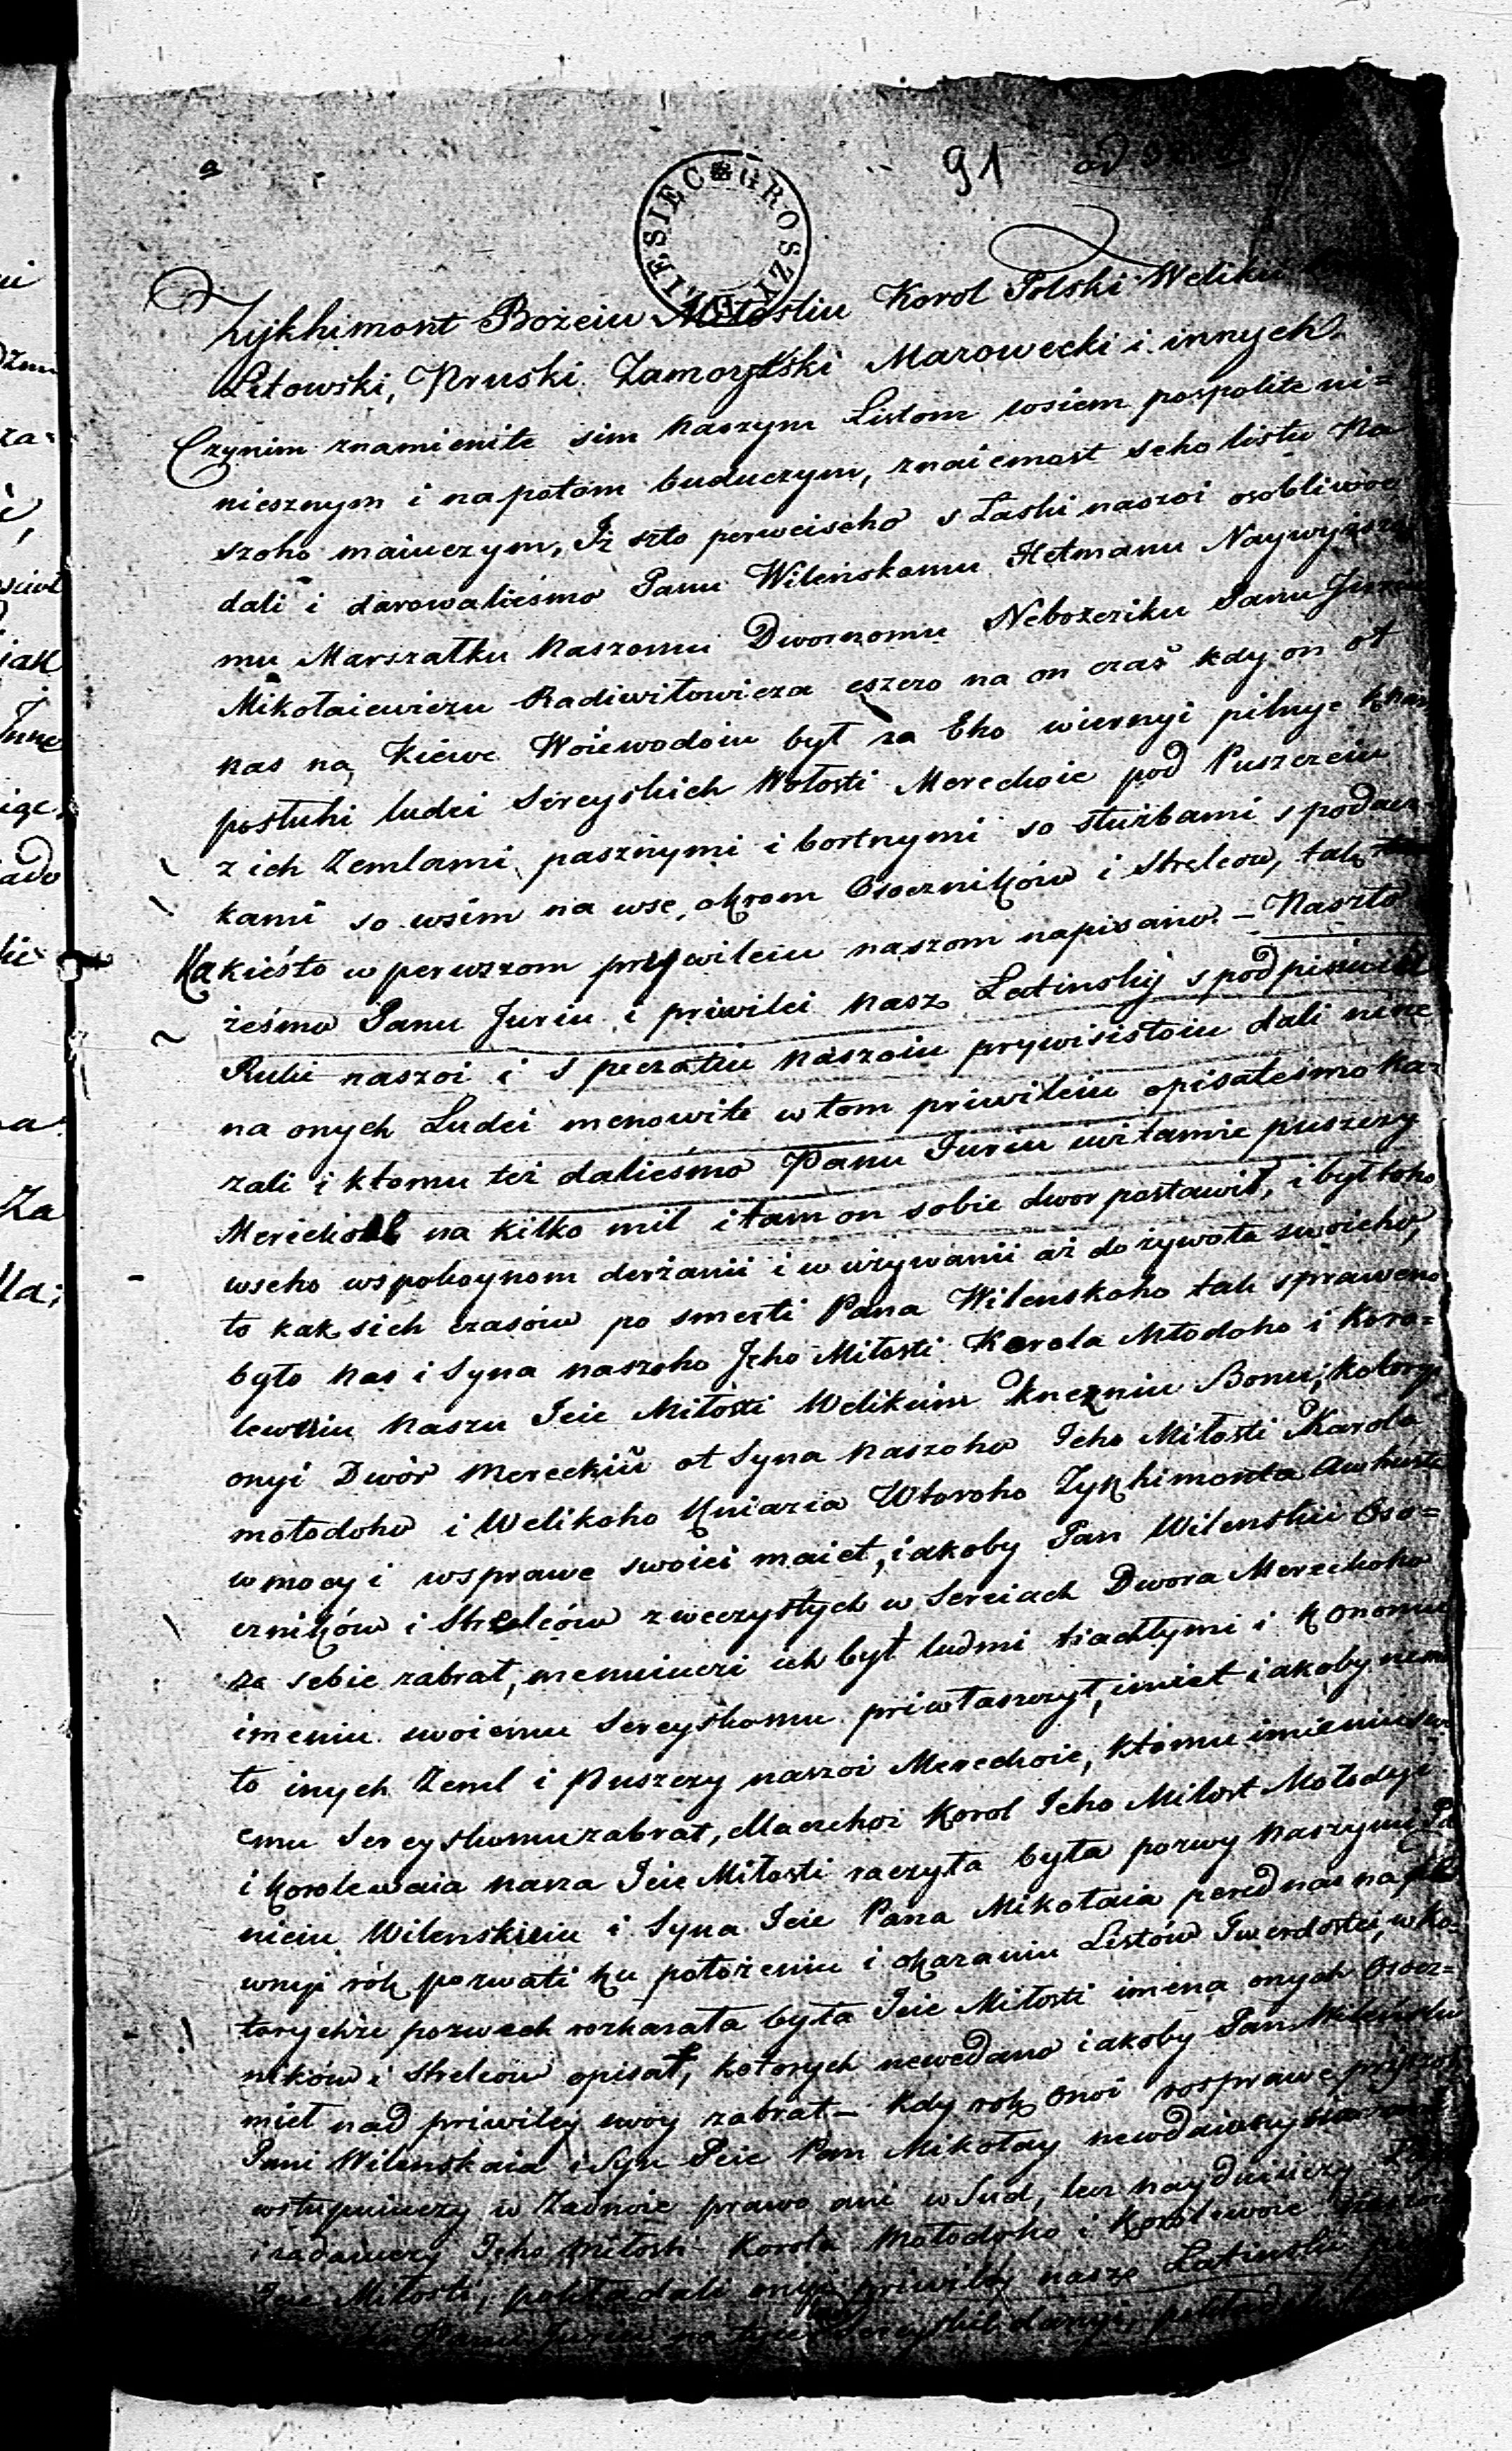 91
DZIESIĘĆ GROSZY
Zyjkhimont Bożeiu Miłostiu Korol Polski Weliki
Litowski, Pruski Zamoyłski Marowecki i innych
Czynim znamienite sim naszym Listom wsiem pospolite ni=
niesznym i napotom buduczym, znaiemost seho listu Na
szoho maiuczym, Iż szto perweiseho s Łaski naszoi osobliwoe
dali i darowaliesmo Panu Wilenskomu Hetmanu Naywyższo
mu Marszałku Naszomu Dwornomu Nebożcziku Panu Juriu
Mikołaiewiczu Radiwiłowicza eszczo na on czas kdy on ot
nas na Kiewe Woiewodoiu był za Eho wiernyi pilnye
posłuhi ludei Sereyskich Wołosti Mereckoie pod Puszczeiu
z ich Zemlami pasznymi i bortnymi so służbami s podacz=
kami so wsim na wse, okrom Osoczników i Strelcow, tak
Kakieśto w perwszom prywileiu naszom napisano. – Naszto
żeśmo Panu Juriu i priwilei nasz Latinskij s podpisaniem
Ruki naszoi i s peczatiu naszoiu prywisistoiu dali
na onych Ludei menowite w tom priwileiu opisaleśmo Ka=
zali i ktomu też daliesmo Panu Juriu uwitamie puszczy
Mereckoie na kilko mil i tam on sobie dwor postawił, i był toho
wseho wspokoynom derżanii i w używanii aż do żywota swoieho,
to kak sich czasów po smerti Pana Wilenskoho tak sprawleno
było Nas i Syna naszoho Jeho Miłosti Korola Młodoho i Koro=
lewuiu Naszu Jeie Miłosti Welikuiu Knezniu Bonu, kotory
onyi Dwór Mereckiü ot Syna Naszoho Jeho Miłosti Karola
mołodoho i Welikoho Kniazia Wtoroho Zykhimonta Awhusta
w mocy i wsprawe swoiei maiet, iakoby Pan Wilenskii Oso=
czników i Strelców z weczystych w Sereiach Dwora Mereckoho
za sebie zabrał, menuiuczi ich był ludmi tiachłymi i k onomu
imeniu swoiemu Sereyskomu priwłaszczył, imiet iakoby nemo
to inych Zeml i Puszczy naszoi Mereckoie, ktomu imieniu sw
emu Sereyskomu zabrał, Maczchoi Korol Jeho Milost Mołodyi
i Korolewaia nasza Jeie Miłosti raczyła była pozwy Naszymi Pa
nieiu Wilenskieiu i Syna Jeie Pana Mikołaia pered nas na pe
wnyi rók pozwati ku położeniu i okazaniu Listów Twerdostei, w Ko=
torychże pozwach rozkazała była Jeie Miłosti imena onych Osocz=
ników i Strelcow opisat, kotorych newedano iakoby Pan Wilenski
miet nad priwiley swoy zabrat – kdy rok onoi rosprawe pryszoł
Pani Wilenskaia i Syn Jeie Pan Mikołay newdaiuczy
wstupuiuczy w Żadnoie prawo ani w Sud, lecz nayduiuczy
i żadaiuczy Jeho Miłosti Korola Mołodoho i Korolewoie
Jeie Miłosti, pokładali onyi priwiley nasz Latinski
Panu Juriu na tych Sereyskich danyi, pokład